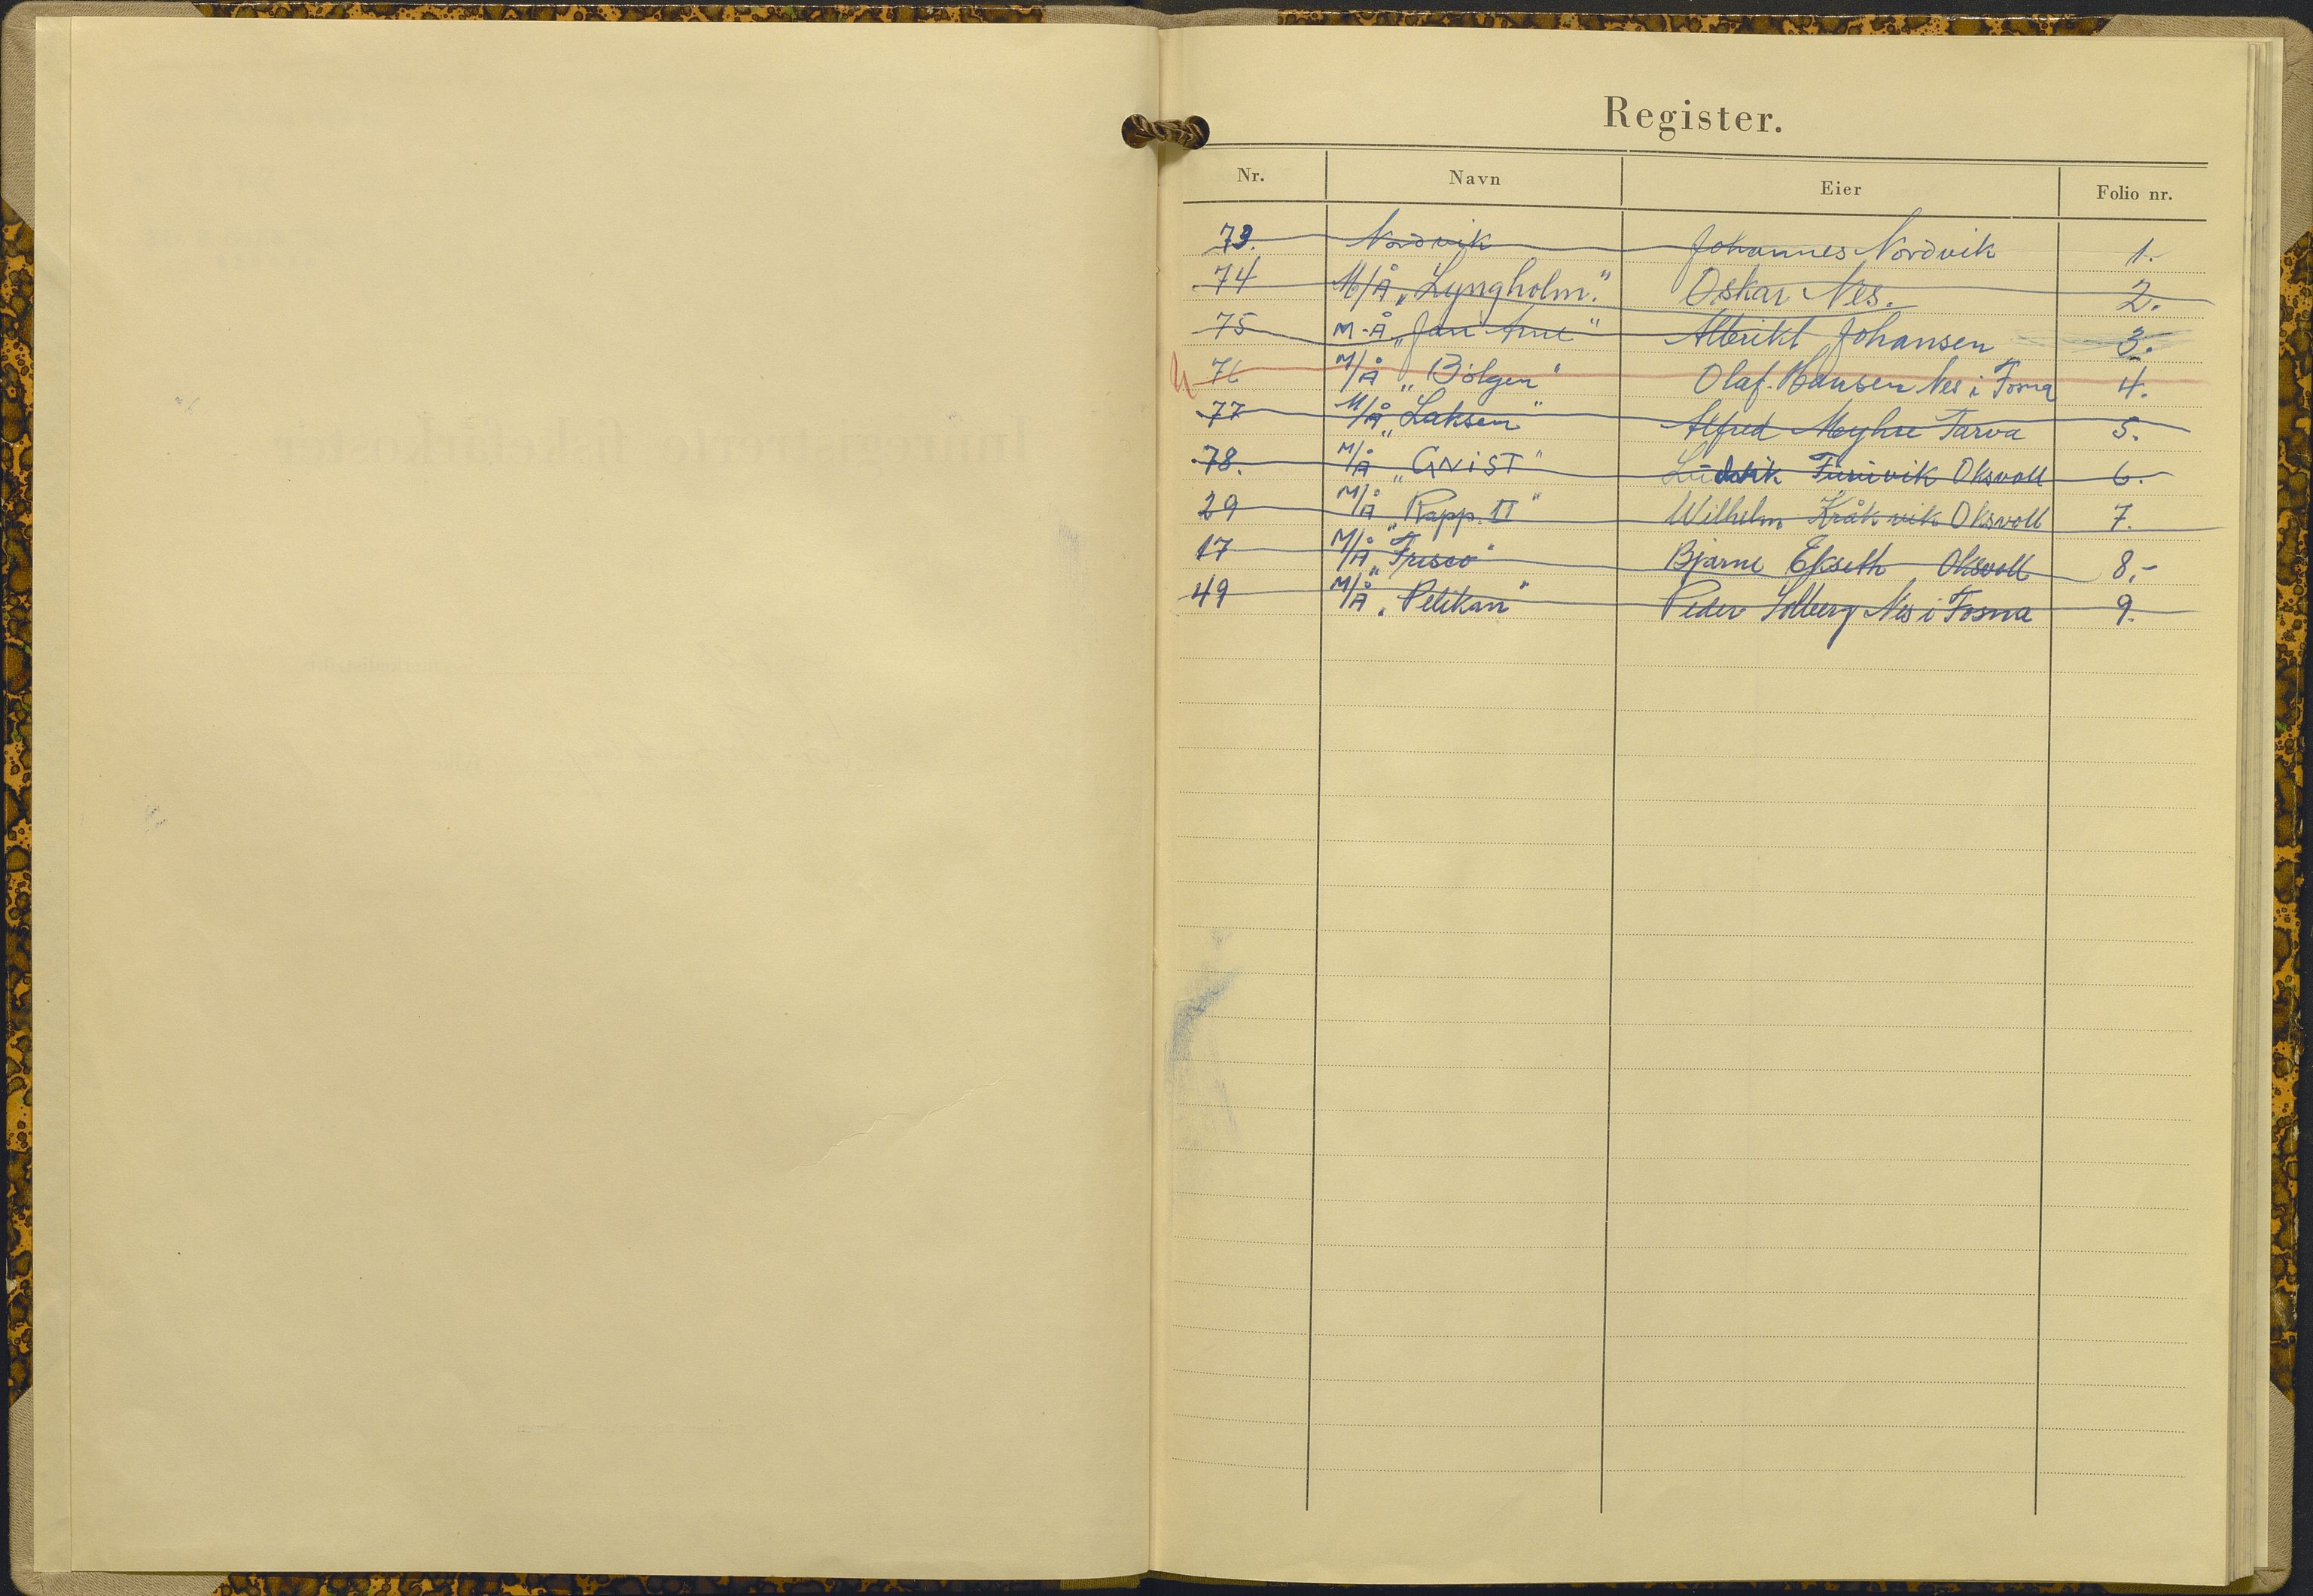 Register.
Nr. Navn Eier Folio nr.
73. Nordvik Johannes Nordvik 1.
74 M/Å „Lyngholm." Oskar Nes. 2.
75 M-Å „Jan Arne" Albrikt Johansen 3.
76 M/Å „Bölgen" Olaf Hansen Nes i Fosna 4.
77 M/Å „Laksen" Alfred Meyhre Tarva 5.
78. M/Å „GNiST" Ludvik Furuvik Oksvoll 6.
29 M/Å „Rapp II" Wilhelm Kråkvik Oksvoll 7.
17 M/Å „Frisco" Bjarne Ekseth Oksvoll 8.-
49 M/Å „Pelikan" Peder Solberg Nes i Fosna 9.